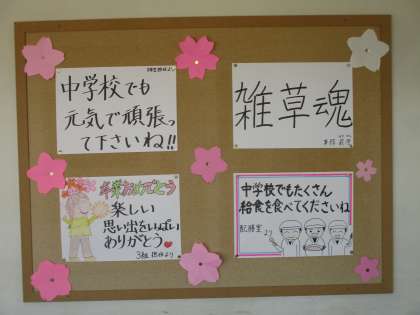 中学校でも
元気で頑張っ
て下さいね!!
雑草魂
卒業おめでとう
楽しい
思い出をいっぱい
ありがとう
3組 担任より
中学校でもたくさん
給食を食べてくださいね
配膳室より